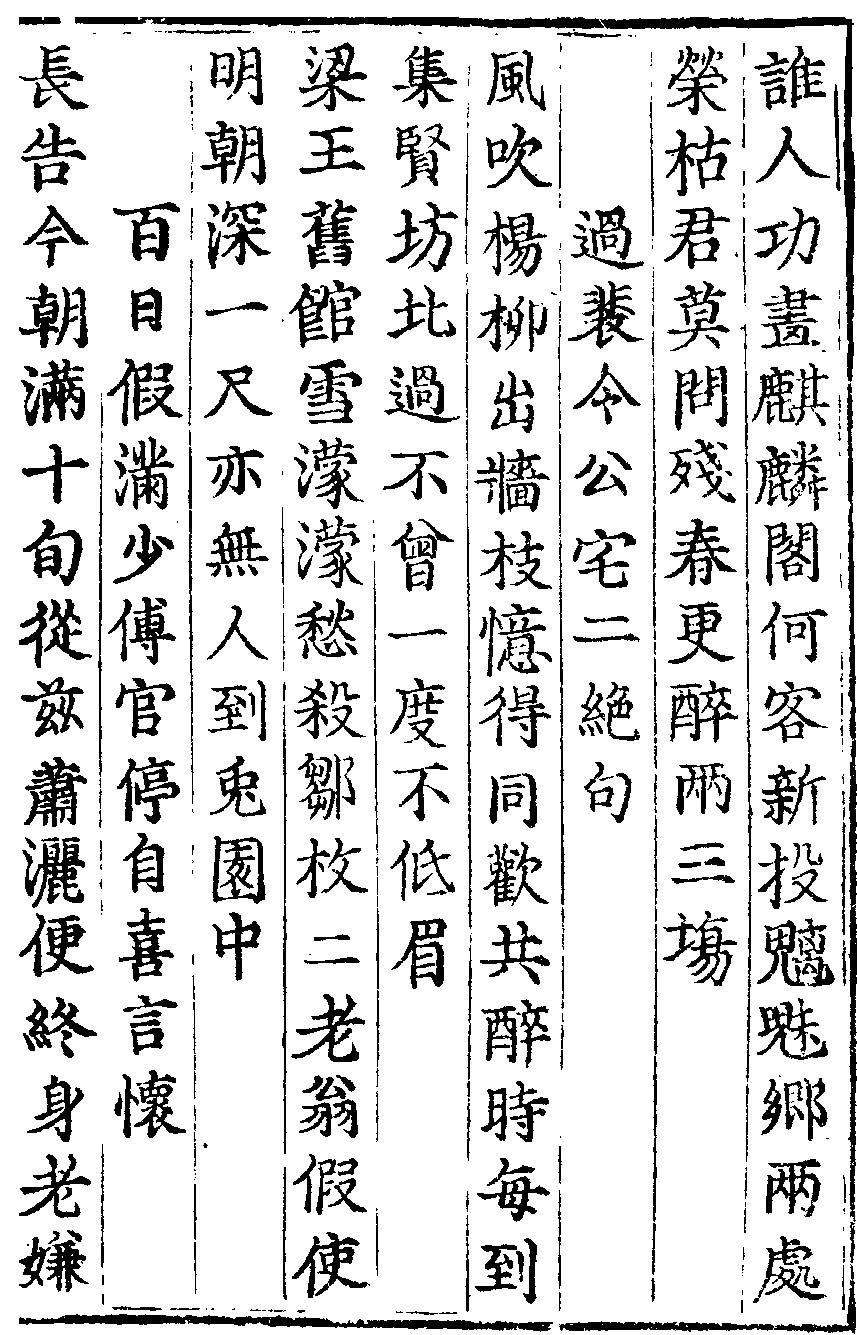 誰人功畫麒麟閣何客新投魑魅鄉兩處
榮枯君莫問殘春更醉兩三塲
過裴令公宅二絶句
風吹楊柳出牆枝憶得同歡共醉時每到
集賢坊北過不曾一度不低眉
梁王舊館雪濛濛愁殺鄒枚二老翁假使
明朝深一尺亦無人到兎園中
百日假滿少傅官停自喜言懷
長告今朝滿十旬從兹蕭灑便終身老嫌